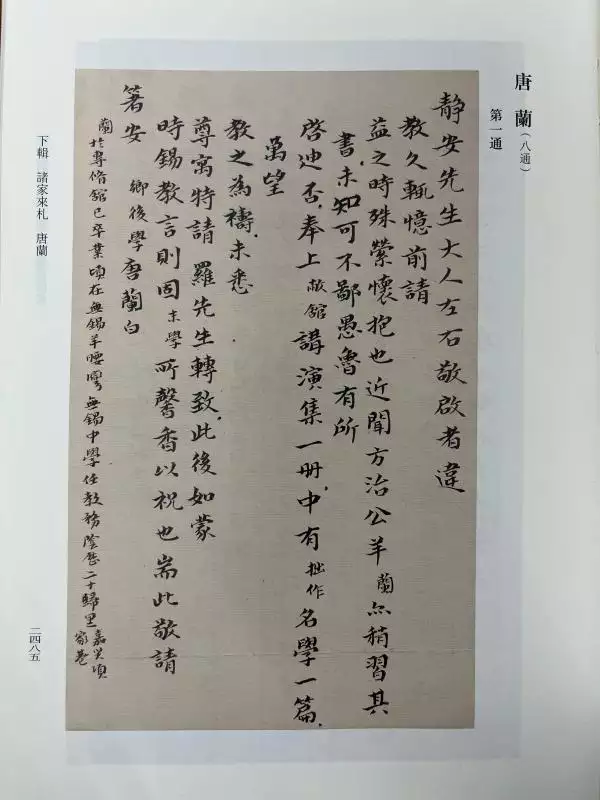 唐蘭（八通）
第一通
静安先生大人左右敬啟者違
教久輒憶前請
益之時殊縈懷抱也近聞方治公羊蘭点稍習其
書未知可不鄙愚魯有所
啓迪否奉上敝館講演集一册中有拙作名學一篇
萬望
教之為禱未悉
尊寓特請羅先生轉致此後如蒙
時錫教言則固末學所馨香以祝也耑此敬請
箸安 鄉後學唐蘭白
蘭於專脩舘已卒業頃在無錫羊腰灣無錫中學任教務陰厯二十歸里嘉興項家巷
下輯 諸家來札 唐蘭
二四八五